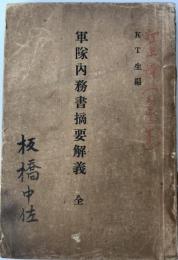 KT生編
軍隊內務書摘要解義 全
板橋中佐